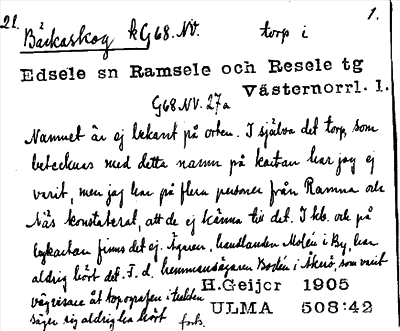 21. Bäckaskog kG68.NV. torp i 1.
Edsele sn Ramsele och Resele tg
Västernorrl. l.
G68.NV. 27a
Namnet är ej bekant på orten. I själva det torp, som
betecknas med detta namn på kartan har jag ej
varit, men jag har på flera personer från Ramna och
Näs konstaterat, att de ej känna till det. I kb. och på
lagkartan finns det ej. Ägaren, handlanden Molén i By, har
aldrig hört det. F. d. hemmansägaren Bodén i Åkerö, som varit
vägvisare åt topografen i trakten
säger sig aldrig ha hört forts.
H.Geijer 1905
ULMA 508:42